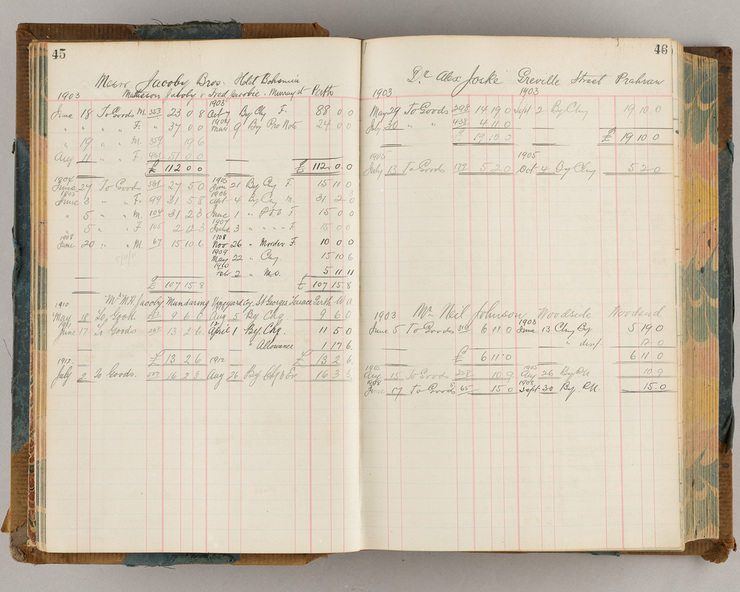 45
Jacoby Bros. Hotel Bohemia
Jacoby & Fred Jacobie - Murray St Perth
1903 1903
June 18 To Goods M 353 23 0 8 Oct 7 By Chq F. 88 0 0
" " " F. " 37 0 0 1904 Mar 9 By Pro Note 24 0 0
" 19 " " M. 19 6
Aug 11 " " F. 51 0 0
£ 112 0 0 £ 112 0 0
1904
June 27 To Goods 27 5 0 Jan 21 By Chq F. 15 11 0
June 3 " " F. 99 31 5 8 Sept 4 By Chq M. 31 2 0
" 5 " " M. 104 31 2 3 June 1 " F. 15 0 0
" 5 " " F. 105 2 2 3 1907 June 3 " " " F. 15 0 0
1908
June 20 " " M 67 15 10 6 1908 Nov 26 " Morder F. 10 0 0
1909
May 22 " Chq. 15 10 6
1910
Feb 2 " M.O. 5 11 11
£ 107 15 8 £ 107 15 8
1910 Mr M.H. Jacoby Mandaring Vineyard Ag. St Georges Terrace Perth W.A.
May 18 To Goods 9 6 0 Aug 5 By Chq 9 6 0
June 17 To Goods 13 2 6 April 1 By Chq. 11 5 0
" Allowance 1 17 6
£ 13 2 6 £ 13 2 6
1912 1912
July 2 To Goods. 16 2 3 Aug 26 By Chq & Ex 16 3 3
46
Dr Alex Joske Greville Street Prahran
1903 1903
May 29 To Goods 298 14 19 0 Sept 2 By Chq 19 10 0
July 30 " " 438 4 11 0
£ 19 10 0 £ 19 10 0
1905 1905
July 13 To Goods 132 5 2 0 Oct 4 By Chq 5 2 0
1903 Mr Neil Johnson Woodside Woodend
June 5 To Goods 6 11 0 1903 June 13 Chq By 5 19 0
" " 12 0
£ 6 11 0 6 11 0
1905 1905
Aug 15 To Goods 228 10 9 Aug 26 By P.N. 10 9
1908 1908
June 17 To Goods 65 15 0 Sept 30 By P.N. 15 0